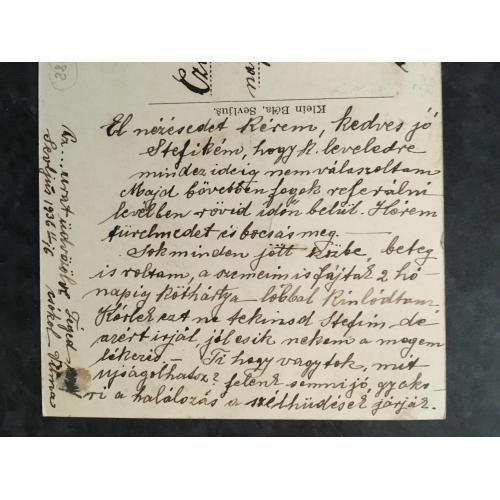 82
Klein Béla, Sevljus.
El nézésedet kérem, kedves jó
Stefikém, hogy k. leveledre
mindez ideig nem válaszoltam
Majd bővebben fogok referálni
levélben rövid időn belül. Kérem
türelmedet és bocsás meg. —
Sokminden jött közbe, beteg
is voltam, a szemeim is fájtak 2 hó-
napig kötőhártya-lobbal kinlódtam
Kérlek ezt ne tekinsd Stefim, de
azért irjál, jól esik nekem a megem
lékezés — Ti hogy vagytok, mit
ujságolhatsz? felénk semmi jó, gyako-
ri a halálozás a szélhüdések járják.
urat üdvözlöm Téged
ölel csókol Ilma
Sevljus 1936